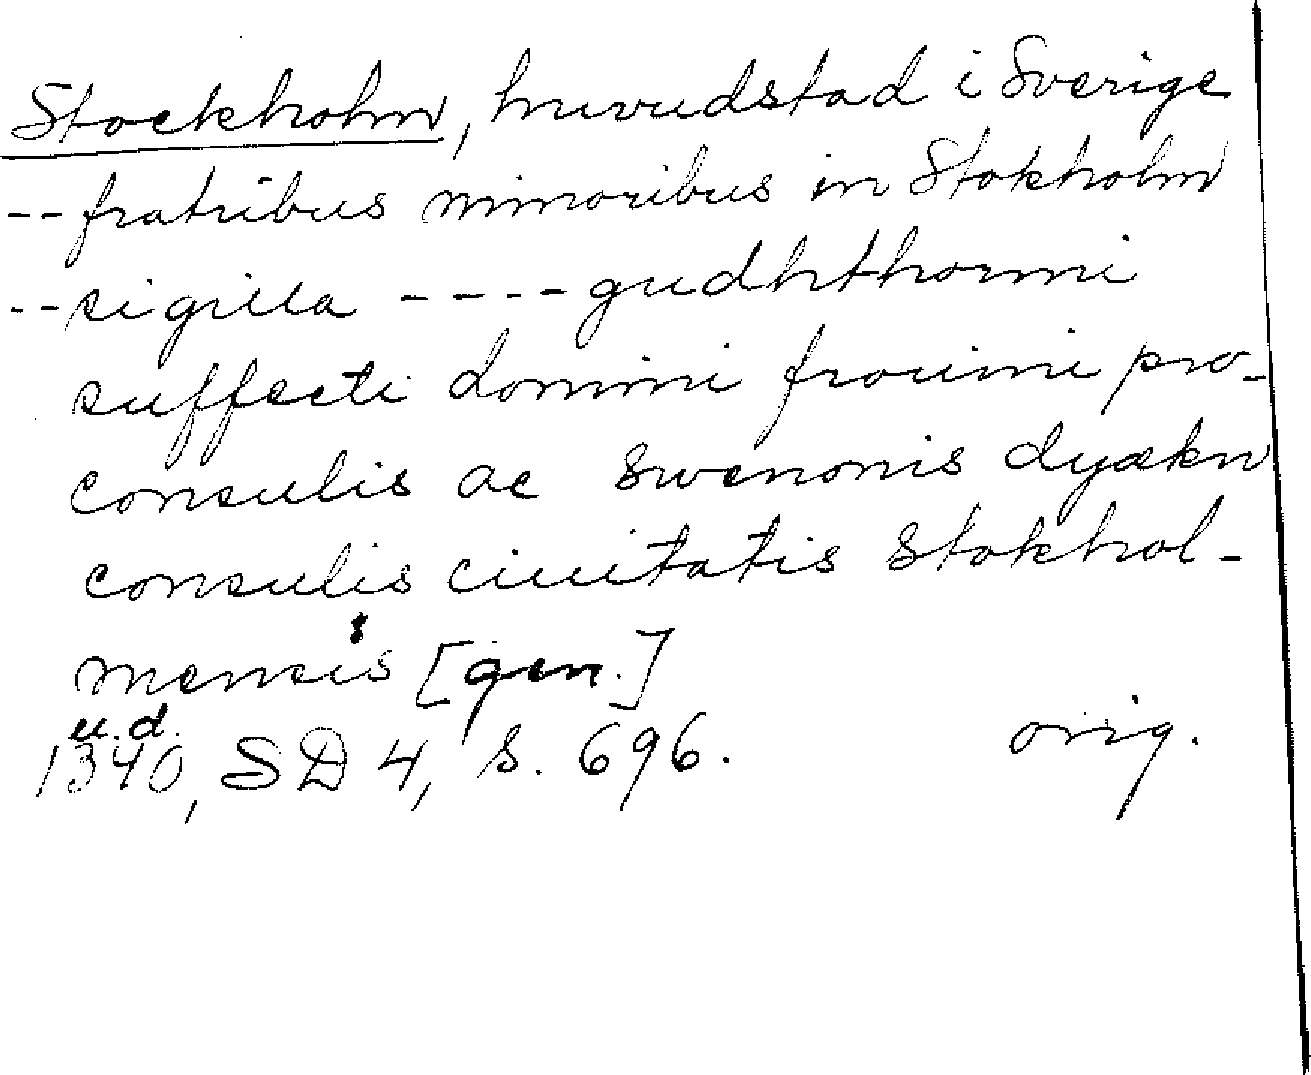 Stockholm, huvudstad i Sverige
--fratribus minoribus in Stokholm
--sigilla ----gudhthormi
suffecti domini frouini pro-
consulis ac Swenonis dyækn
consulis ciuitatis Stokhol-
mensis [gen.]
u.d.
1340, SD 4, s. 696. orig.